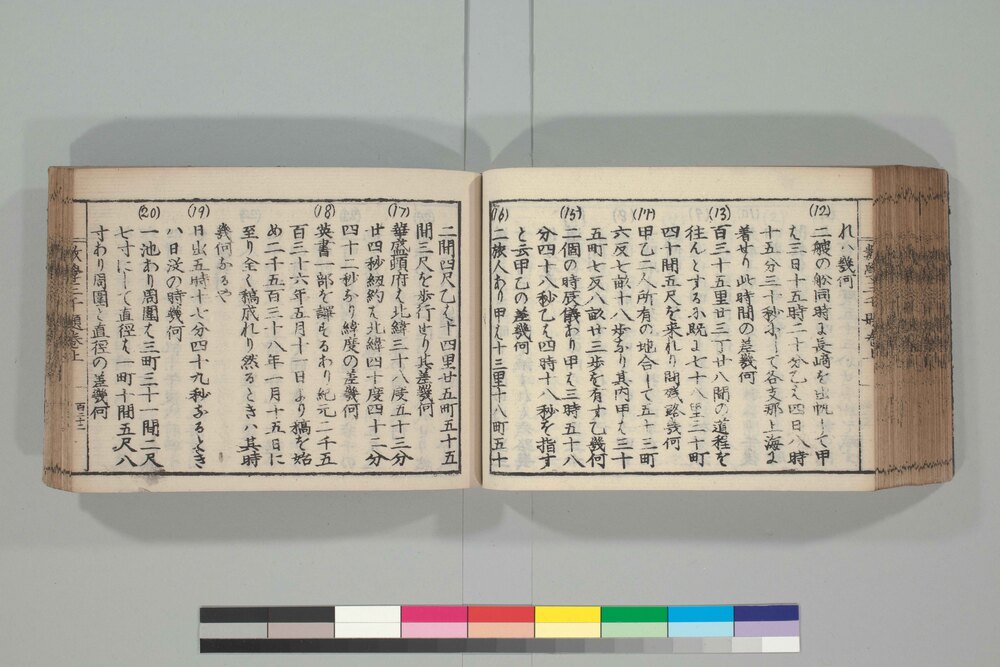 れハ幾何
(12)
二艘の舩同時よ長崎を出帆して甲
ハ三日十五時二十分乙ハ四日八時
十五分三十秒ふして各支那上海よ
着せり此時間の差幾何
(13)
百三十五里廿三丁廿八間の道程を
往んとするふ既よ七十八里三十町
四十間五尺を来れり問残路幾何
(14)
甲乙二人所有の地合して五十三町
六反七畝十八歩なり其内甲ハ三十
五町七反八畝廿三歩を有す乙幾何
(15)
二個の時辰儀あり甲ハ三時五十八
分四十八秒乙ハ四時十八秒を指す
と云甲乙の差幾何
(16)
二旅人あり甲ハ十三里十八町五十
二間四尺乙ハ十四里廿五町五十五
間三尺を歩行せり其差幾何
(17)
華盛頓府ハ北緯三十八度五十三分
廿四秒紐約ハ北緯四十度四十二分
四十二秒なり緯度の差幾何
(18)
英書一部を譯もるあり紀元二千五
百三十六年五月十一日より稿を始
め二千五百三十八年一月十五日に
至り全く稿成れり然るときハ其時
幾何なるや
(19)
日出五時十七分四十九秒なるとき
ハ日没の時幾何
(20)
一池あり周圍ハ三町三十一間二尺
七寸にして直径ハ一町十間五尺八
すわり周圍と直径の差幾何
百三十二